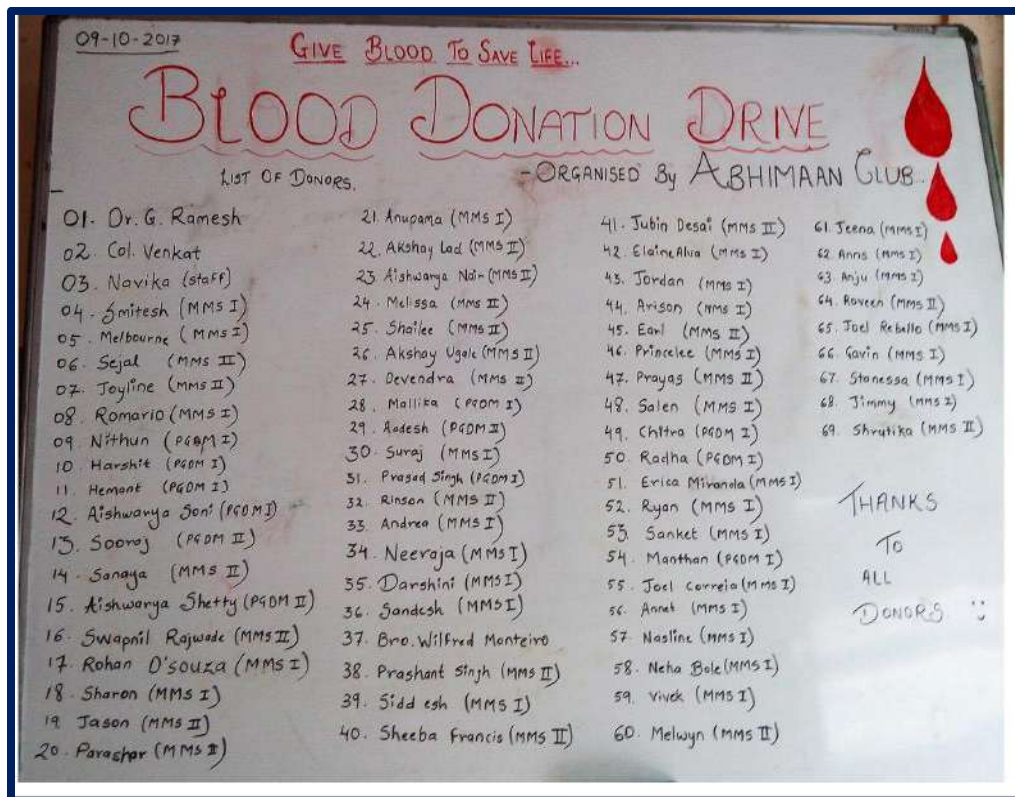 09-10-2017
GIVE BLOOD TO SAVE LIFE...
BLOOD DONATION DRIVE
LIST OF DONORS.
-ORGANISED By ABHIMAAN CLUB..
01. Dr. G. Ramesh
02. Col. Venkat
03. Navika (staff)
04. Smitesh (MMS I)
05. Melbourne (MMS I)
06. Sejal (MMS II)
07. Joyline (MMS II)
08. Romario (MMS I)
09. Nithun (PGDM I)
10. Harshit (PGDM I)
11. Hemant (PGDM I)
12. Aishwarya Soni (PGDM I)
13. Sooraj (PGDM II)
14. Sanaya (MMS II)
15. Aishwarya Shetty (PGDM II)
16. Swapnil Rajwade (MMS II)
17. Rohan D'souza (MMS I)
18. Sharon (MMS I)
19. Jason (MMS II)
20. Parashar (MMS II)
21. Anupama (MMS I)
22. Akshay Lad (MMS II)
23 Aishwarya Nair (MMS II)
24. Melissa (MMS II)
25. Shailee (MMS II)
26. Akshay Ugale (MMS II)
27. Devendra (MMS II)
28. Mallika (PGDM I)
29. Aadesh (PGDM II)
30. Suraj (MMS I)
31. Prasad Singh (PGDM I)
32. Rinson (MMS II)
33. Andrea (MMS I)
34. Neeraja (MMS I)
35. Darshini (MMS I)
36. Sandesh (MMS I)
37. Bro. Wilfred Monteiro
38. Prashant Singh (MMS II)
39. Siddesh (MMS I)
40. Sheeba Francis (MMS II)
41. Jubin Desai (MMS II)
42. Elaine Alva (MMS I)
43. Jordan (MMS I)
44. Arison (MMS I)
45. Earl (MMS II)
46. Princelee (MMS I)
47. Prayas (MMS II)
48. Salen (MMS I)
49. Chitra (PGDM I)
50. Radha (PGDM I)
51. Erica Miranda (MMS I)
52. Ryan (MMS I)
53. Sanket (MMS I)
54. Manthan (PGDM I)
55. Joel Correia (MMS I)
56. Annet (MMS I)
57. Nasline (MMS I)
58. Neha Bole (MMS I)
59. Vivek (MMS I)
60. Melwyn (MMS II)
61. Jeena (MMS I)
62. Anns (MMS I)
63. Anju (MMS I)
64. Raveen (MMS II)
65. Joel Rebello (MMS I)
66. Gavin (MMS I)
67. Stanessa (MMS I)
68. Jimmy (MMS I)
69. Shrutika (MMS II)
THANKS
TO
ALL
DONORS :)